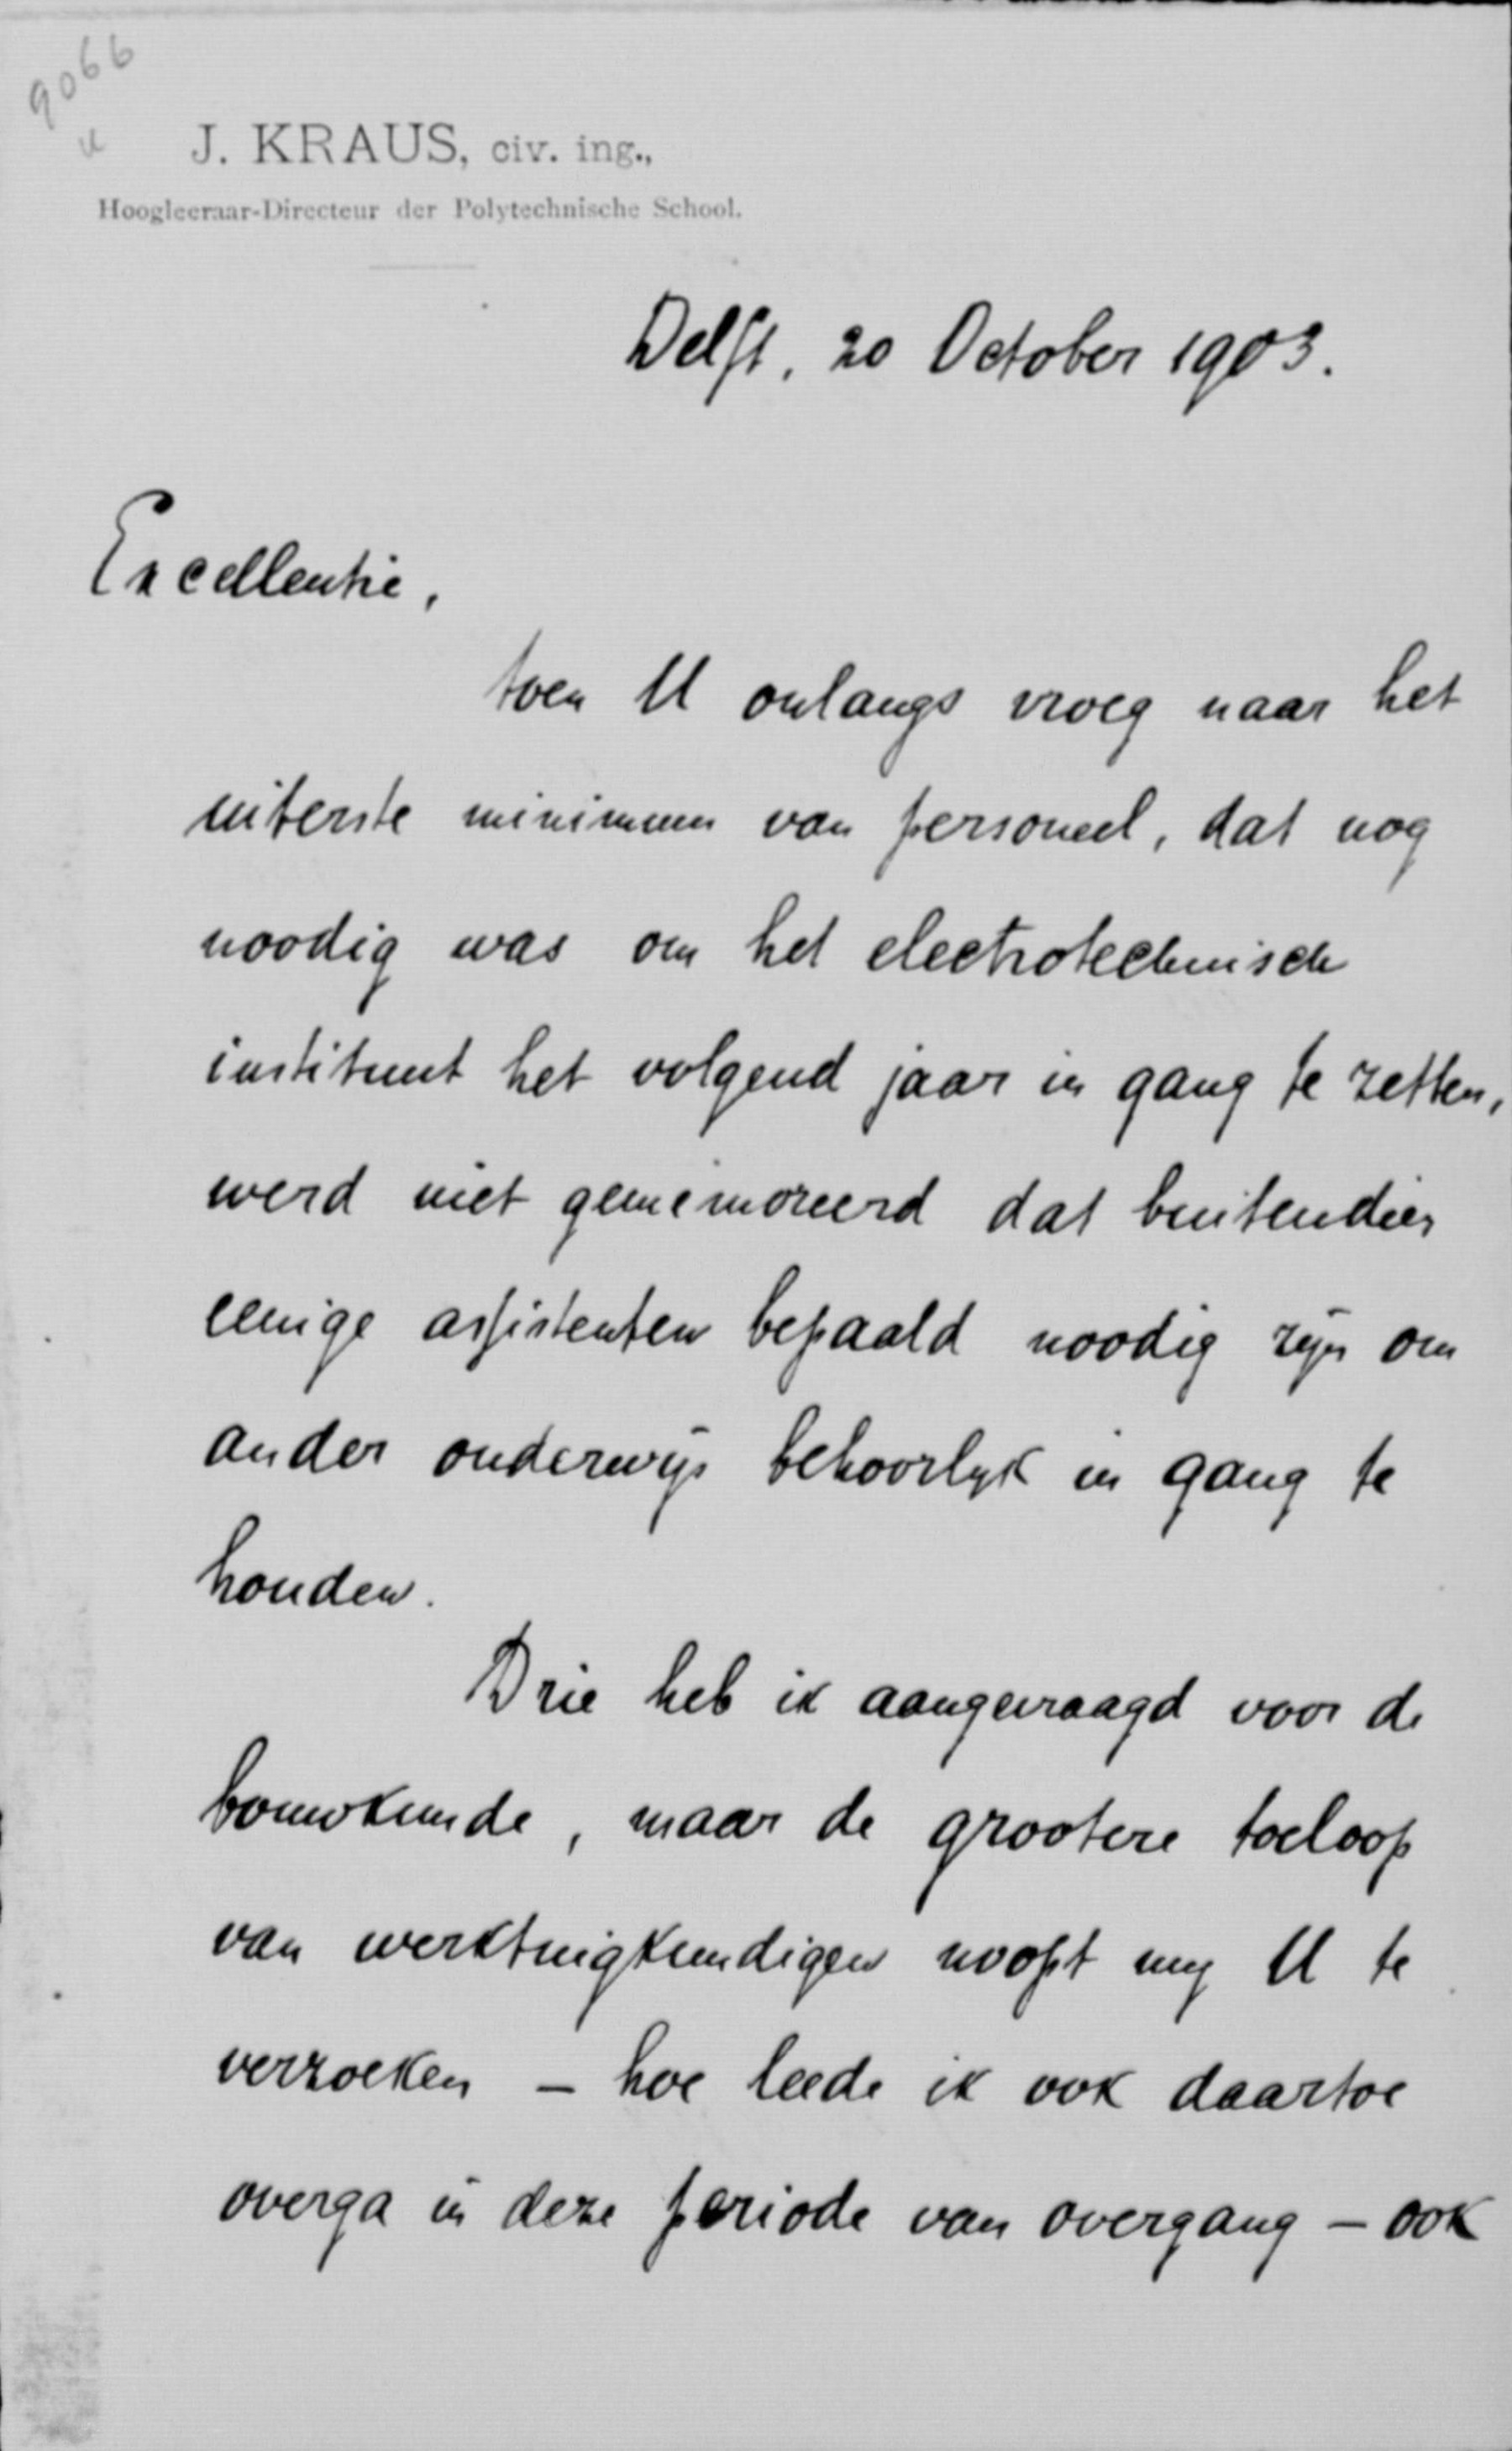 9066
J. KRAUS, civ. ing.,
Hoogleeraar-Directeur der Polytechnische School.
Delft, 20 October 1903.
Excellentie,
toen U onlangs vroeg naar het
uiterste minimum van personeel, dat nog
noodig was om het electrotechnisch
instituut het volgend jaar in gang te zetten,
werd niet gememoreerd dat buitendien
eenige assistenten bepaald noodig zijn om
ander onderwijs behoorlijk in gang te
houden.
Drie heb ik aangevraagd voor de
bouwkunde, maar de grootere toeloop
van werktuigkundigen noopt mij U te
verzoeken – hoe leede ik ook daartoe
overga in deze periode van overgang – ook